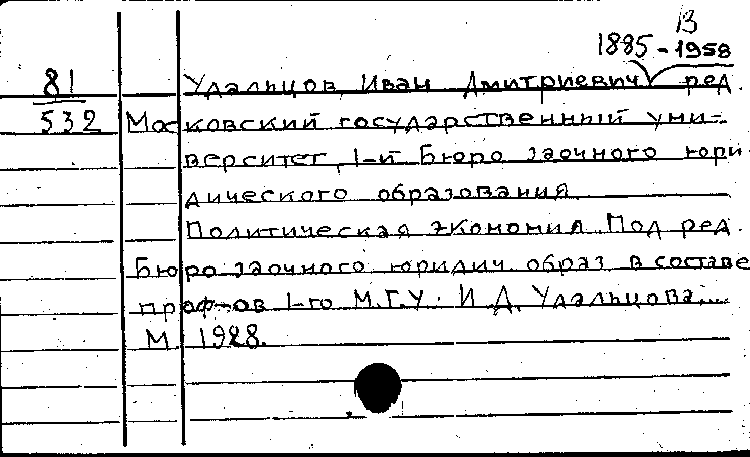 В
1885-1958
81 Удальцов, Иван Дмитриевич, ред.
532 Московский государственный уни-
верситет, 1-й Бюро заочного юри
дического образования
Политическая экономия. Под ред.
Бюро заочного юридич. образ. в составе
проф-ов 1-го М.Г.У. И.Д. Удальцова...
М. 1928.